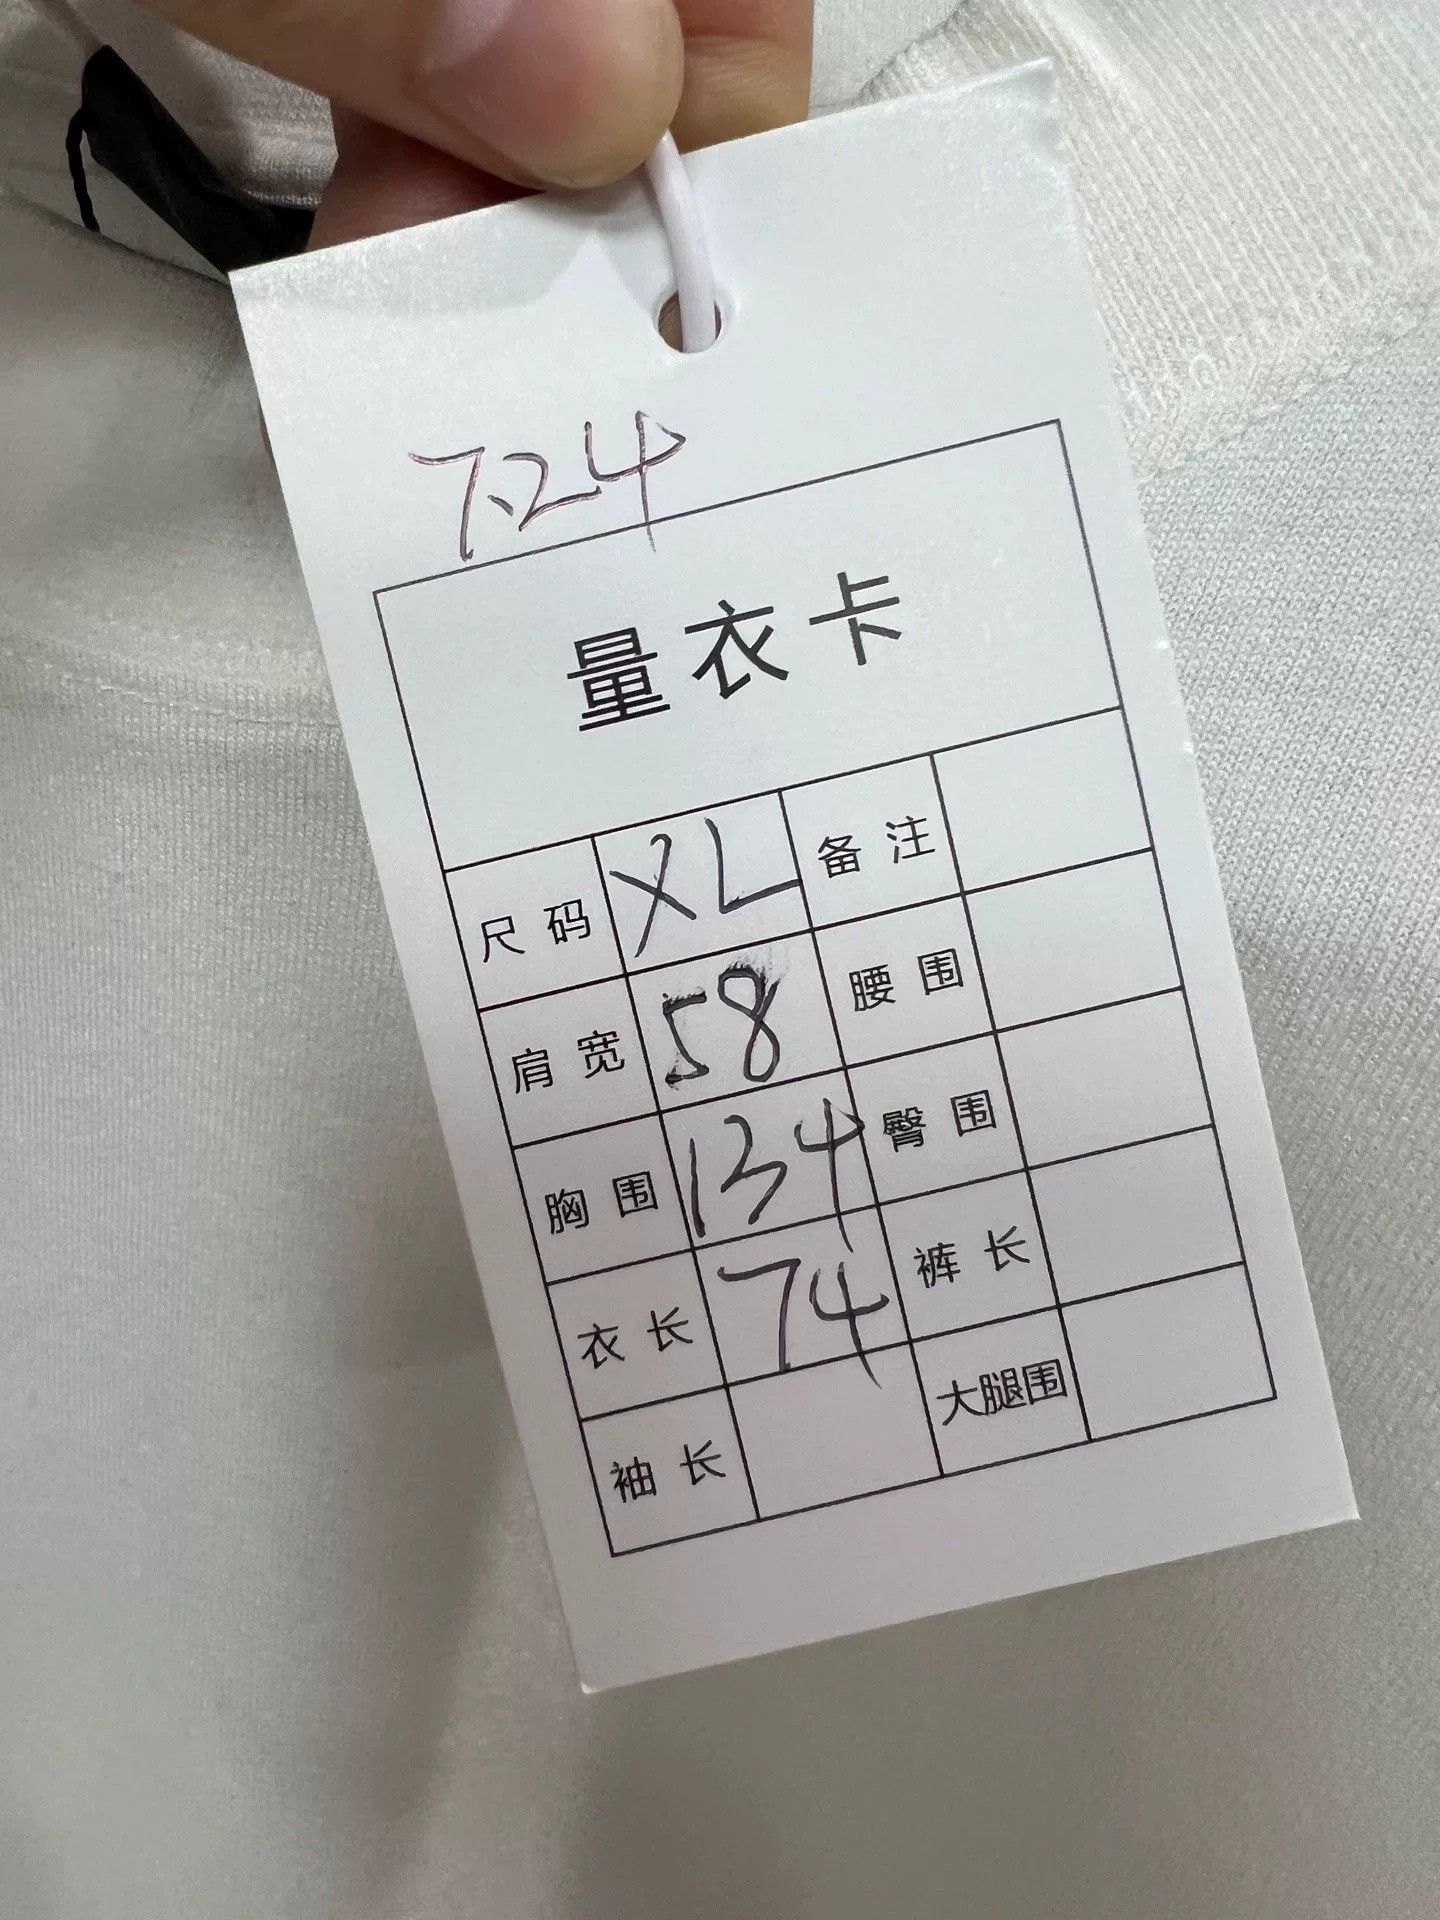 7.24
量衣卡
尺码 XL 备注
肩宽 58 腰围
胸围 134 臀围
衣长 74 裤长
袖长 大腿围